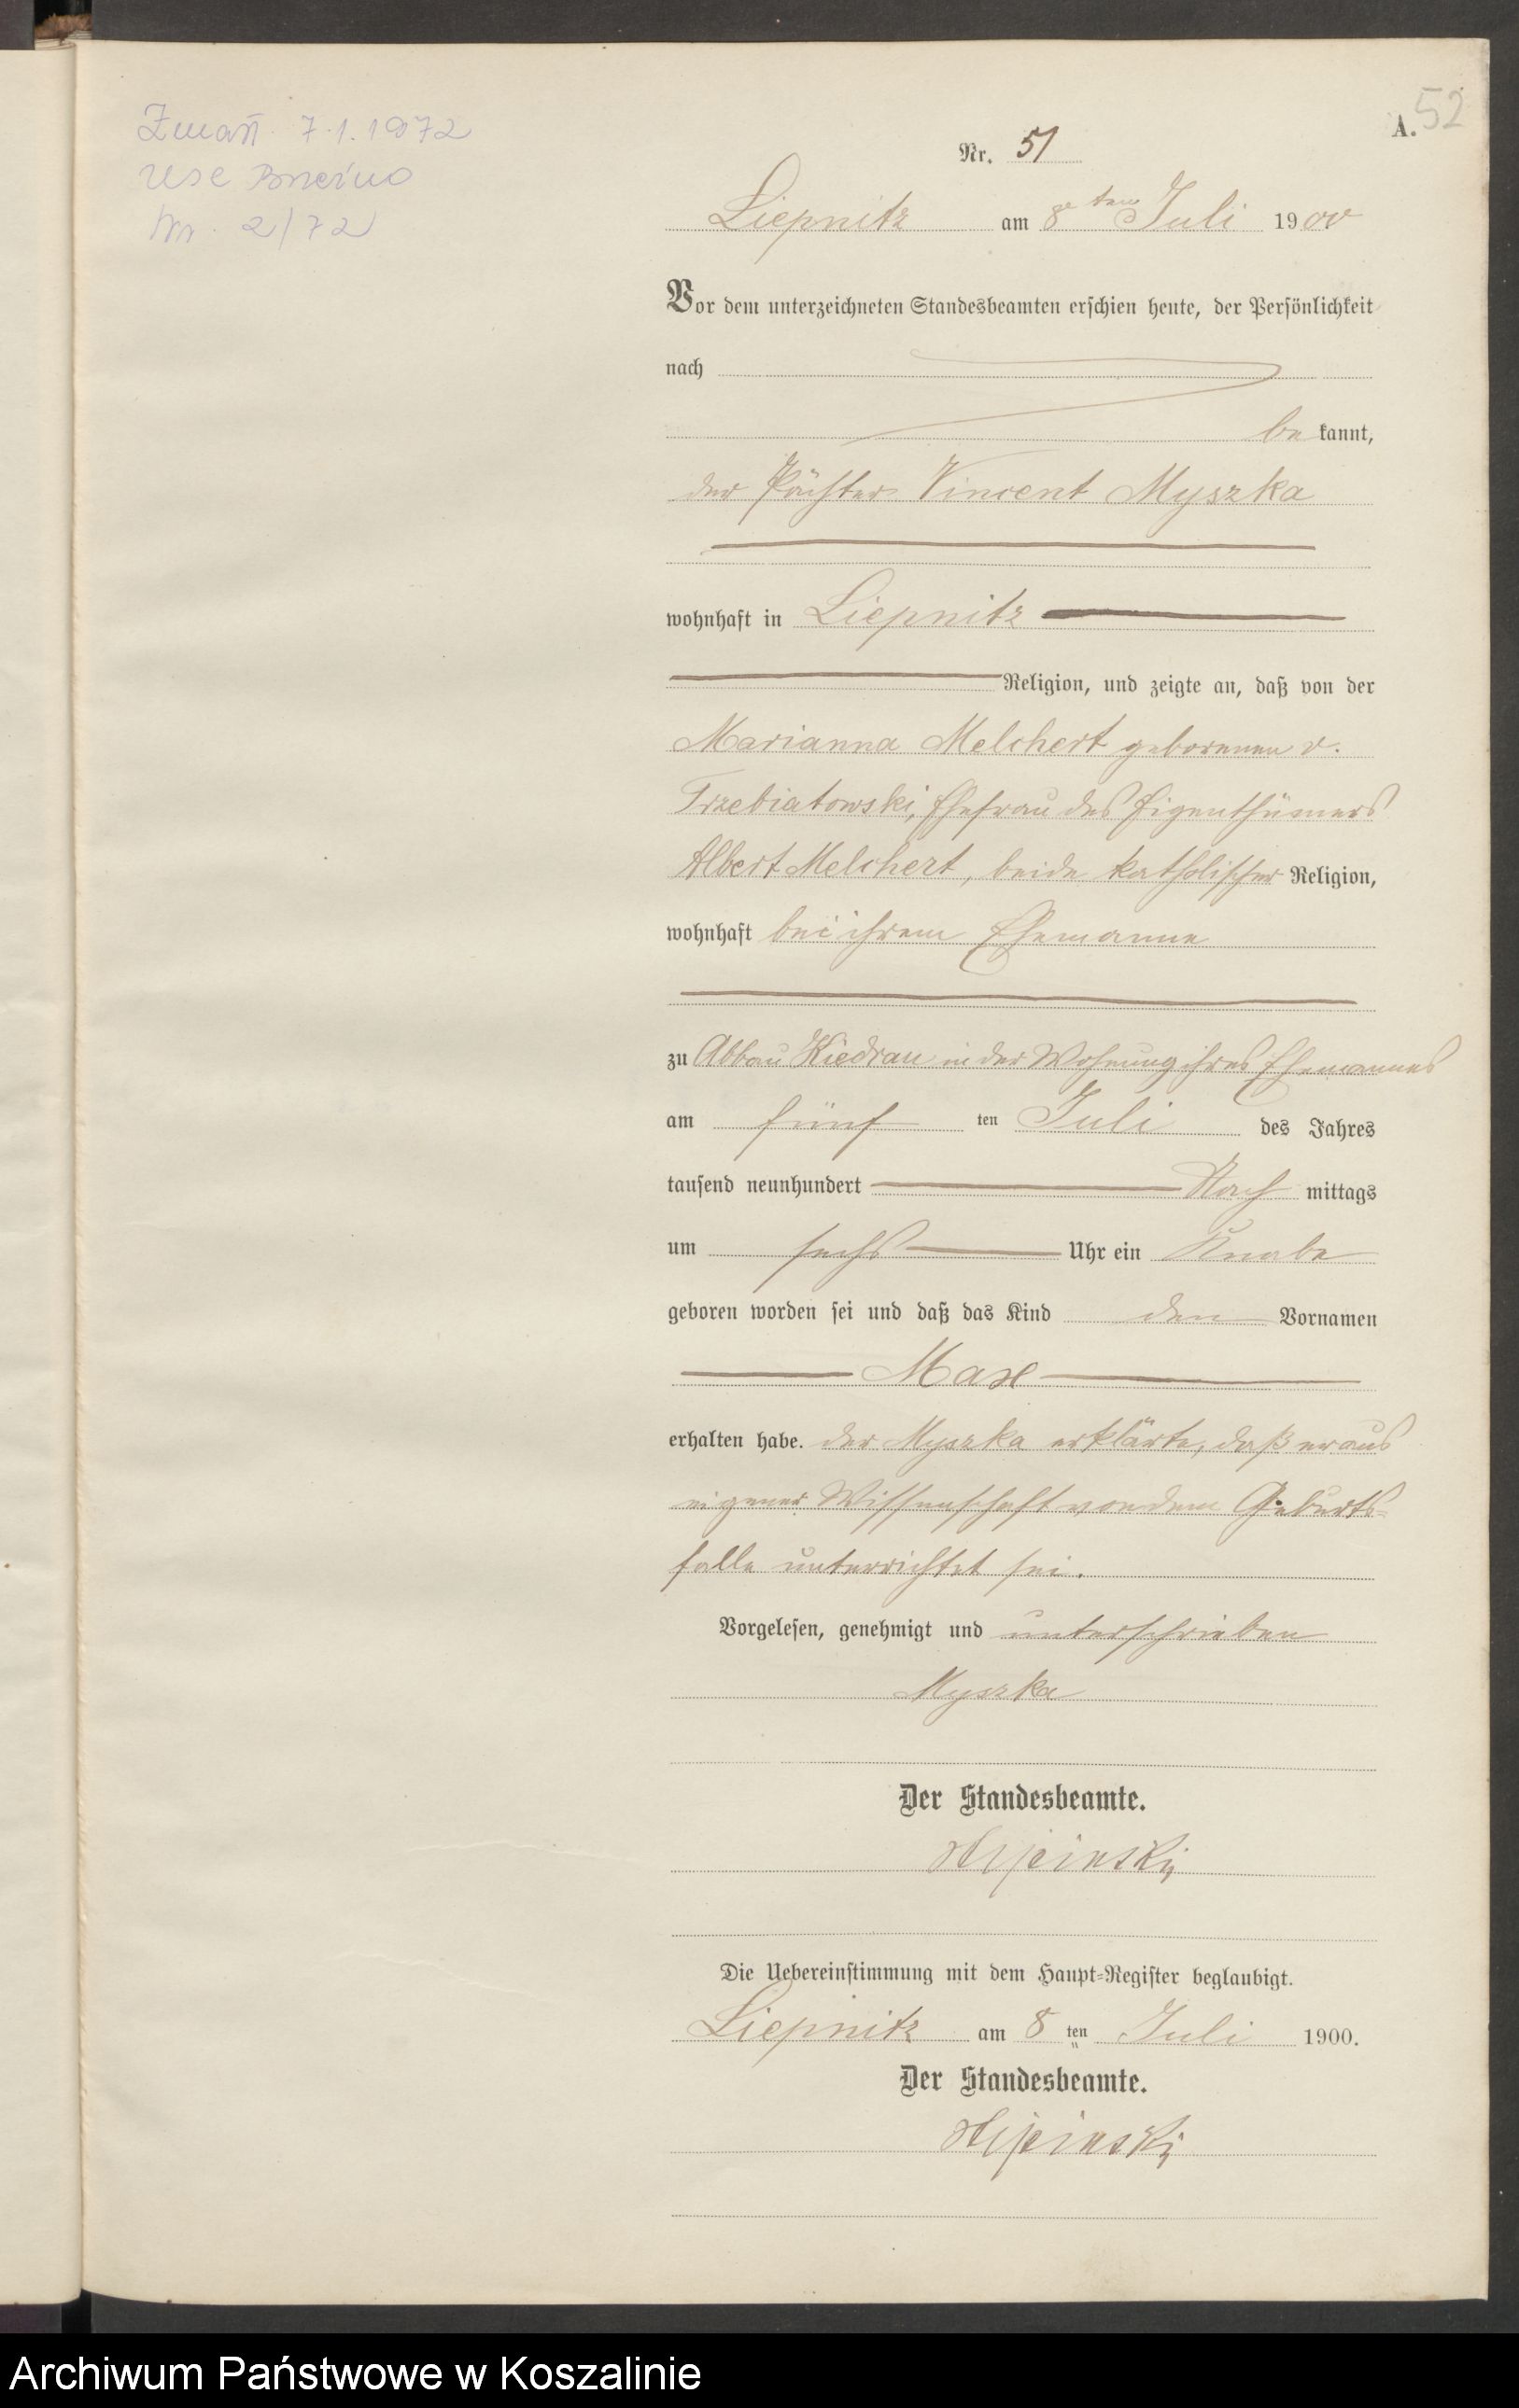 A. 52
Zmarł 7.1.1972
USC
Nr. 2/72
Nr. 51
Liepnitz am 8 ten Juli 1900
Vor dem unterzeichneten Standesbeamten erschien heute, der Persönlichkeit
nach
be kannt,
der Pächter Vincent Myszka
wohnhaft in Liepnitz
Religion, und zeigte an, daß von der
Marianna Melchert geborenen v.
Trzebiatowski, Ehefrau des Eigenthümers
Albert Melchert, beide katholischer Religion,
wohnhaft bei ihrem Ehemanne
zu Abbau Kiedrau in der Wohnung ihres Ehemannes
am fünf ten Juli des Jahres
tausend neunhundert Nach mittags
um sechs Uhr ein Knabe
geboren worden sei und daß das Kind den Vornamen
Max
erhalten habe. der Myszka erklärte, daß er aus
eigener Wissenschaft von dem Geburts-
falle unterrichtet sei.
Vorgelesen, genehmigt und unterschrieben
Myszka
Der Standesbeamte.
Die Uebereinstimmung mit dem Haupt-Register beglaubigt.
Liepnitz am 8 ten Juli 1900.
Der Standesbeamte.
Archiwum Państwowe w Koszalinie